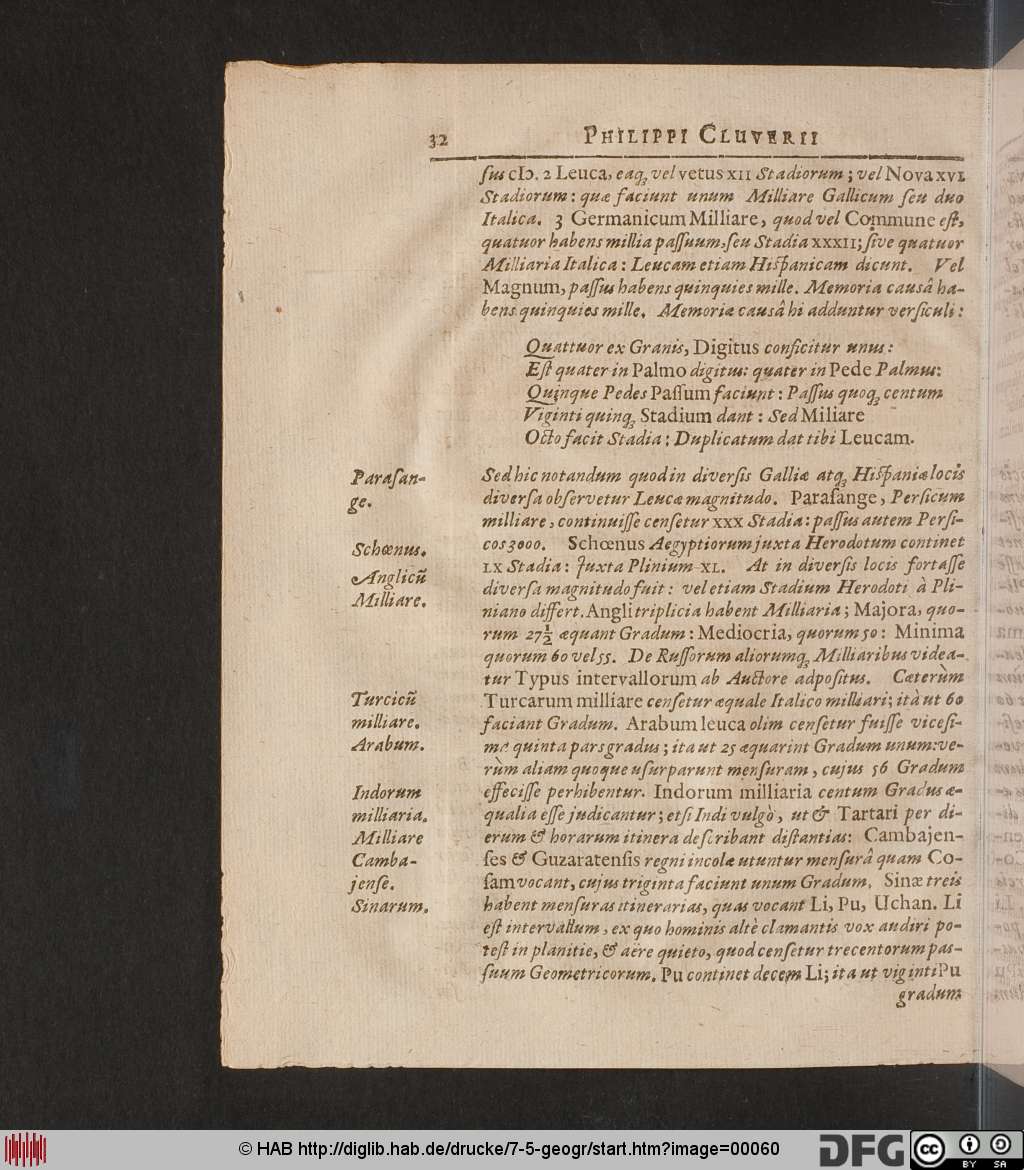 32 PHILIPPI CLUVERII
ſus cIɔ. 2 Leuca, eaq́ꝫ vel vetus XII Stadiorum; vel Nova XVI
Stadiorum: quæ faciunt unum Milliare Gallicum ſeu duo
Italica. 3 Germanicum Milliare, quod vel Commune eſt,
quatuor habens millia paſſuum, ſeu Stadia XXXII; ſive quatuor
Milliaria Italica: Leucam etiam Hiſpanicam dicunt. Vel
Magnum, paſſus habens quinquies mille. Memoria causâ ha-
bens quinquies mille. Memoriæ causâ hi adduntur verſiculi:
Quattuor ex Granis, Digitus conficitur unus:
Eſt quater in Palmo digitus: quater in Pede Palmus:
Quinque Pedes Paſſum faciunt: Paſſus quoqꝫ centum
Viginti quinqꝫ Stadium dant: Sed Miliare
Octo facit Stadia; Duplicatum dat tibi Leucam.
Paraſan-
ge.
Sed hic notandum quod in diverſis Galliæ atqꝫ Hiſpaniæ locis
diverſa obſervetur Leucæ magnitudo. Paraſange, Perſicum
milliare, continuiſſe cenſetur XXX Stadia: paſſus autem Perſi-
Schœnus.
cos 3000. Schœnus Aegyptiorum juxta Herodotum continet
LX Stadia: Juxta Plinium XL. At in diverſis locis fortaſſe
Anglicũ
Milliare.
diverſa magnitudo fuit: vel etiam Stadium Herodoti à Pli-
niano differt. Angli triplicia habent Milliaria; Majora, quo-
rum 27½ æquant Gradum: Mediocria, quorum 50: Minima
quorum 60 vel 55. De Ruſſorum aliorumqꝫ Milliaribus videa-
tur Typus intervallorum ab Auctore adpoſitus. Cæterùm
Turcicũ
milliare.
Arabum.
Turcarum milliare cenſetur æquale Italico milliari; ità ut 60
faciant Gradum. Arabum leuca olim cenſetur fuiſſe viceſi-
ma quinta pars gradus; ita ut 25 æquarint Gradum unum: ve-
rùm aliam quoque uſurparunt menſuram, cujus 56 Gradum
Indorum
milliaria.
effeciſſe perhibentur. Indorum milliaria centum Gradus æ-
qualia eſſe judicantur; etſi Indi vulgò, ut & Tartari per di-
Milliare
Camba-
jenſe.
erum & horarum itinera deſcribant diſtantias: Cambajen-
ſes & Guzaratenſis regni incolæ utuntur menſurâ quam Co-
ſam vocant, cujus triginta faciunt unum Gradum. Sinæ treis
Sinarum.
habent menſuras itinerarias, quas vocant Li, Pu, Uchan. Li
eſt intervallum, ex quo hominis altè clamantis vox audiri po-
teſt in planitie, & aëre quieto, quod cenſetur trecentorum paſ-
ſuum Geometricorum. Pu continet decem Li; ita ut viginti Pu
gradum
© HAB http://diglib.hab.de/drucke/7-5-geogr/start.htm?image=00060
DFG
cc BY SA